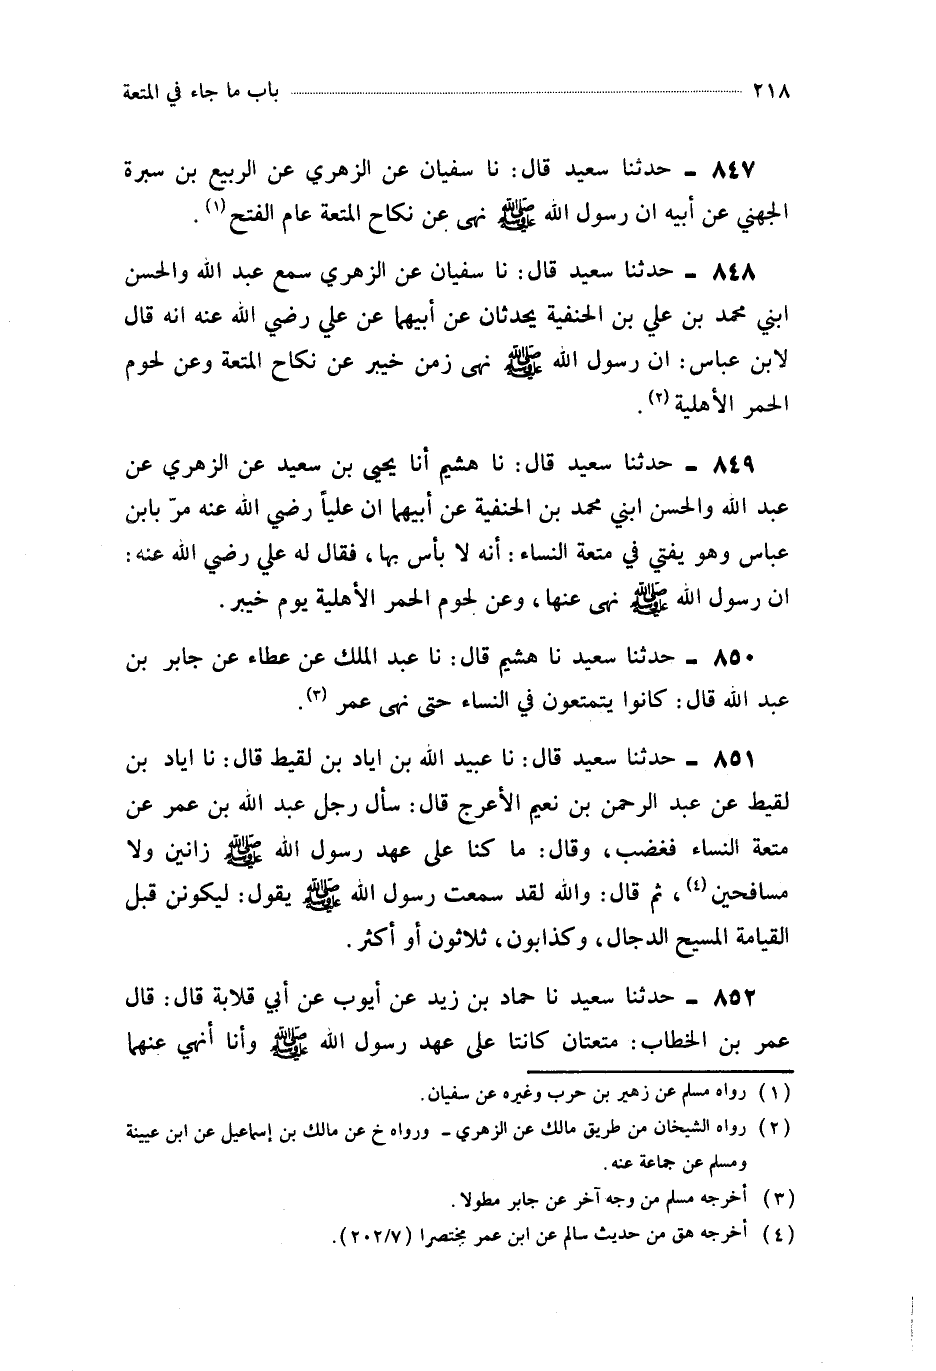 ٢١٨ باب ما جاء في المتعة
٨٤٧ ـ حدثنا سعيد قال: نا سفيان عن الزهري عن الربيع بن سبرة
الجهني عن أبيه ان رسول الله ﷺ نهى عن نكاح المتعة عام الفتح(١).
٨٤٨ ـ حدثنا سعيد قال: نا سفيان عن الزهري سمع عبد الله والحسن
ابني محمد بن علي بن الحنفية يحدثان عن أبيهما عن علي رضي الله عنه انه قال
لابن عباس: ان رسول الله ﷺ نهى زمن خيبر عن نكاح المتعة وعن لحوم
الحمر الأهلية(٢).
٨٤٩ ـ حدثنا سعيد قال: نا هشيم أنا يحيى بن سعيد عن الزهري عن
عبد الله والحسن ابني محمد بن الحنفية عن أبيهما ان علياً رضي الله عنه مرّ بابن
عباس وهو يفتي في متعة النساء: أنه لا بأس بها، فقال له علي رضي الله عنه:
ان رسول الله ﷺ نهى عنها، وعن لحوم الحمر الأهلية يوم خيبر.
٨٥٠ ـ حدثنا سعيد نا هشيم قال: نا عبد الملك عن عطاء عن جابر بن
عبد الله قال: كانوا يتمتعون في النساء حتى نهى عمر(٣).
٨٥١ ـ حدثنا سعيد قال: نا عبيد الله بن اياد بن لقيط قال: نا اياد بن
لقيط عن عبد الرحمن بن نعيم الأعرج قال: سأل رجل عبد الله بن عمر عن
متعة النساء فغضب، وقال: ما كنا على عهد رسول الله ﷺ زانين ولا
مسافحين(٤)، ثم قال: والله لقد سمعت رسول الله ﷺ يقول: ليكونن قبل
القيامة المسيح الدجال، وكذابون، ثلاثون أو أكثر.
٨٥٢ ـ حدثنا سعيد نا حماد بن زيد عن أيوب عن أبي قلابة قال: قال
عمر بن الخطاب: متعتان كانتا على عهد رسول الله ﷺ وأنا أنهي عنهما
(١) رواه مسلم عن زهير بن حرب وغيره عن سفيان.
(٢) رواه الشيخان من طريق مالك عن الزهري ـ ورواه خ عن مالك بن إسماعيل عن ابن عيينة
ومسلم عن جماعة عنه.
(٣) أخرجه مسلم من وجه آخر عن جابر مطولا.
(٤) أخرجه هق من حديث سالم عن ابن عمر مختصرا (٢٠٢/٧).